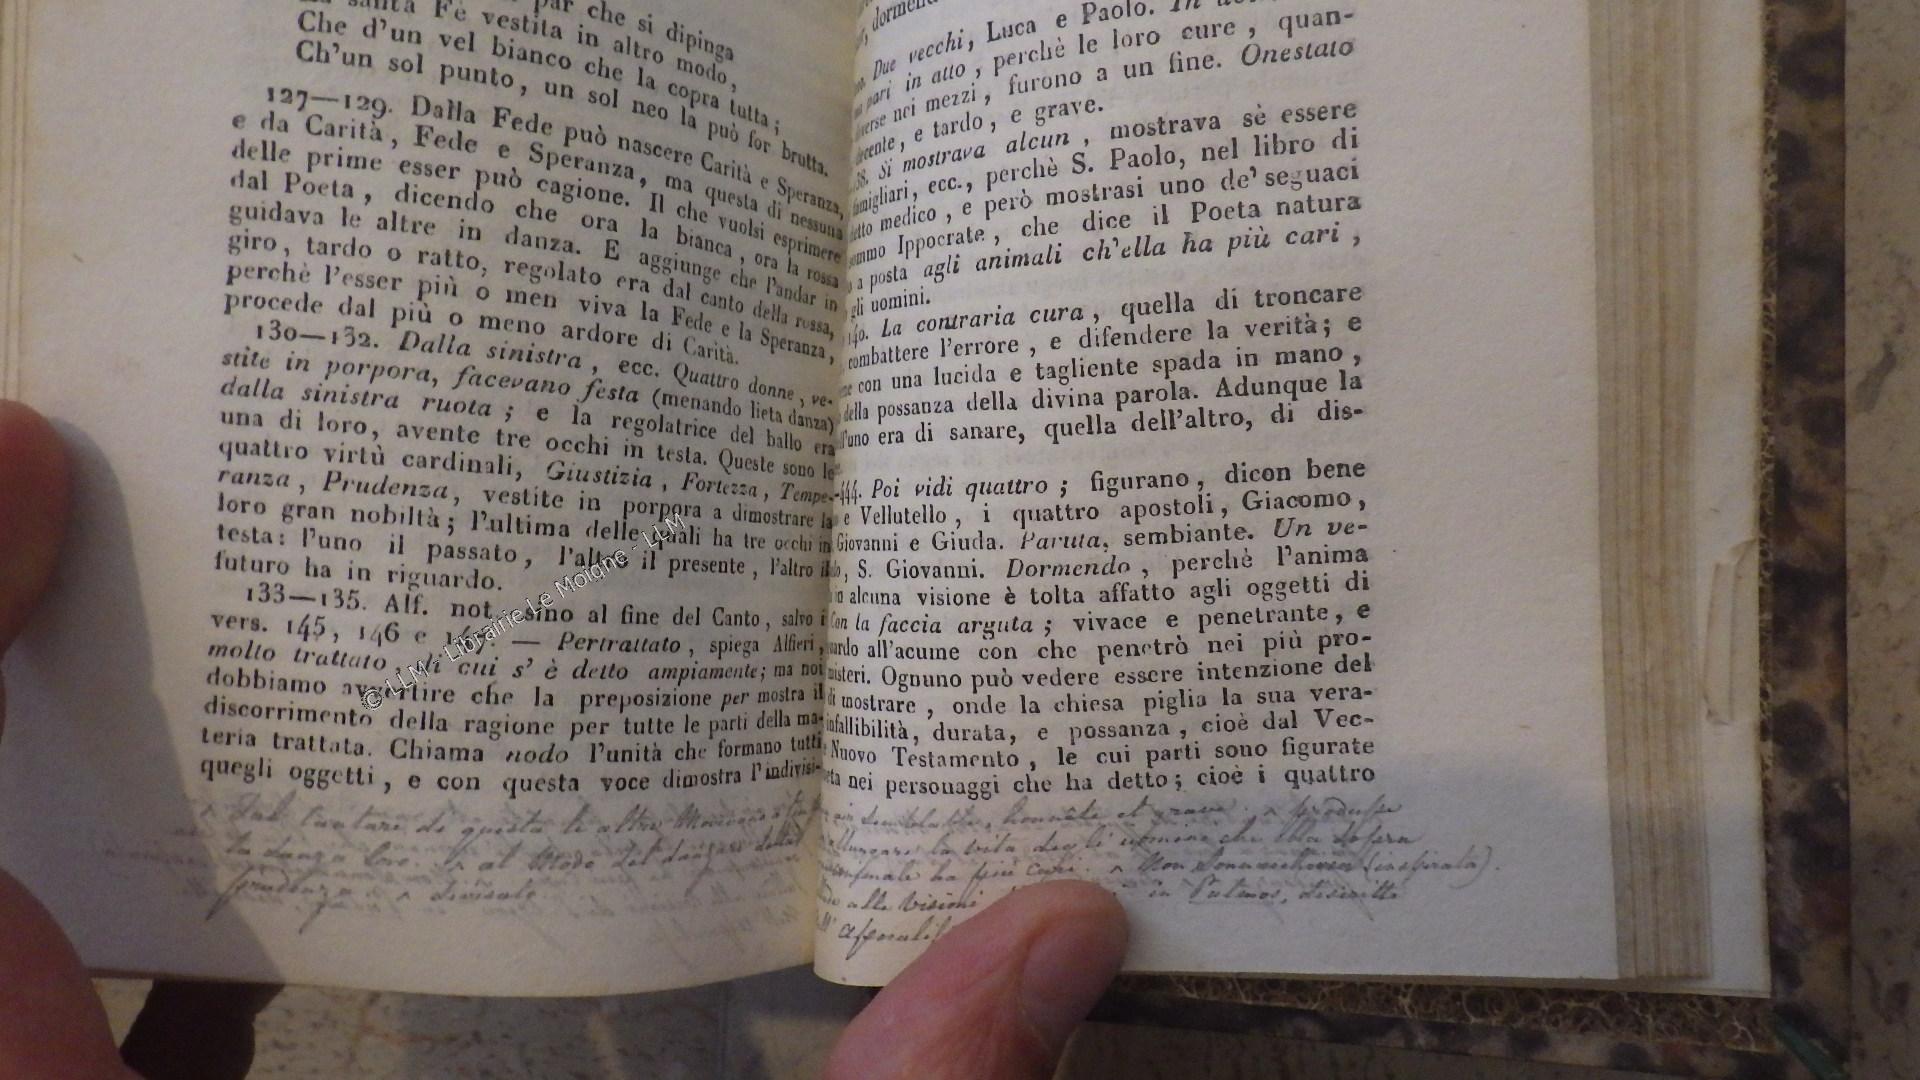 par che si dipinga
santa Fè vestita in altro modo,
Che d'un vel bianco che la copra tutta;
Ch'un sol punto, un sol neo la può for brutta.
127—129. Dalla Fede può nascere Carità e Speranza,
e da Carità, Fede e Speranza, ma questa di nessuna
delle prime esser può cagione. Il che vuolsi esprimere
dal Poeta, dicendo che ora la bianca, ora la rossa
guidava le altre in danza. E aggiunge che l'andar in
giro, tardo o ratto, regolato era dal canto della rossa,
perchè l'esser più o men viva la Fede e la Speranza,
procede dal più o meno ardore di Carità.
130—132. Dalla sinistra, ecc. Quattro donne, ve-
stite in porpora, facevano festa (menando lieta danza)
dalla sinistra ruota; e la regolatrice del ballo era
una di loro, avente tre occhi in testa. Queste sono le
quattro virtù cardinali, Giustizia, Fortezza, Tempe-
ranza, Prudenza, vestite in porpora a dimostrare la
loro gran nobiltà; l'ultima delle quali ha tre occhi in
testa: l'uno il passato, l'altro il presente, l'altro il
futuro ha in riguardo.
133—135. Alf. not. sino al fine del Canto, salvo i
vers. 145, 146 e — Pertrattato, spiega Alfieri,
molto trattato, di cui s'è detto ampiamente; ma noi
dobbiamo avvertire che la preposizione per mostra il
discorrimento della ragione per tutte le parti della ma-
teria trattata. Chiama nodo l'unità che formano tutti
quegli oggetti, e con questa voce dimostra l'indivisi-
Dal cantare di queste
la danza loro. al modo del danzare della
prudenza.
© LLM - Librairie Le Moigne - LLM
dormen
Due vecchi, Luca e Paolo. In
pari in atto, perchè le loro cure, quan-
nei mezzi, furono a un fine. Onestato
e tardo, e grave.
Si mostrava alcun, mostrava sè essere
famigliari, ecc., perchè S. Paolo, nel libro di
medico, e però mostrasi uno de' seguaci
Ippocrate, che dice il Poeta natura
a posta agli animali ch'ella ha più cari,
gli uomini.
140. La contraria cura, quella di troncare
combattere l'errore, e difendere la verità; e
con una lucida e tagliente spada in mano,
della possanza della divina parola. Adunque la
era di sanare, quella dell'altro, di dis-
Poi vidi quattro; figurano, dicon bene
e Vellutello, i quattro apostoli, Giacomo,
Giovanni e Giuda. Paruta, sembiante. Un ve-
S. Giovanni. Dormendo, perchè l'anima
alcuna visione è tolta affatto agli oggetti di
Con la faccia arguta; vivace e penetrante, e
all'acume con che penetrò nei più pro-
misteri. Ognuno può vedere essere intenzione del
di mostrare, onde la chiesa piglia la sua vera-
infallibilità, durata, e possanza, cioè dal Vec-
Nuovo Testamento, le cui parti sono figurate
nei personaggi che ha detto; cioè i quattro
honnête et grave. produsse
la vita degli uomini che
ha più cari. (inspirata).
alle visioni in Patmos,